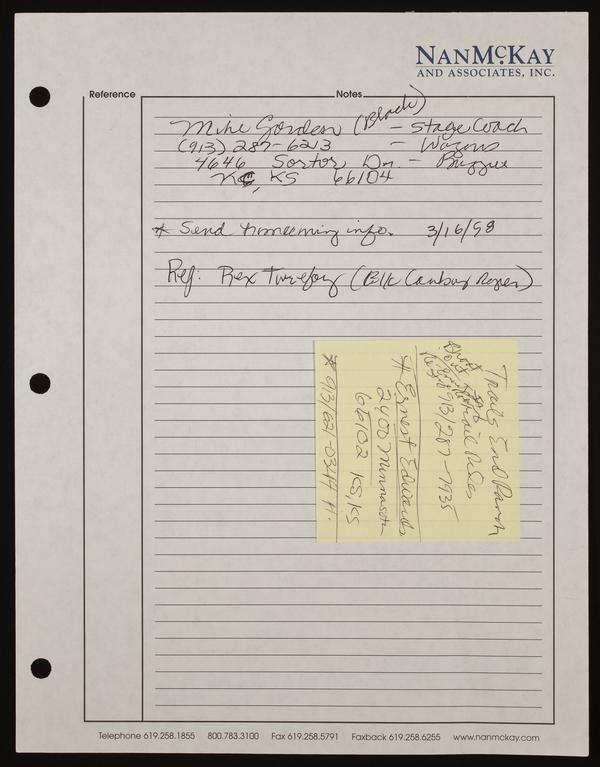 NANMCKAY
AND ASSOCIATES, INC.
Reference
Notes
Mike Gorden (Black) - Stage Coach
(913) 287-6213 - Wagons
4646 Sortor Dr. - Buggie
KC, KS 66104
* Send homecoming info. 3/16/98
Ref: Rex (Blk Cowboy Roper)
Trails End Ranch
Trail Rides
913/287-7935
* Ernest Edwards
2400 Minnesota
66102 KS, KS
* 913/621-0344 H.
Telephone 619.258.1855 800.783.3100 Fax 619.258.5791 Faxback 619.258.6255 www.nanmckay.com